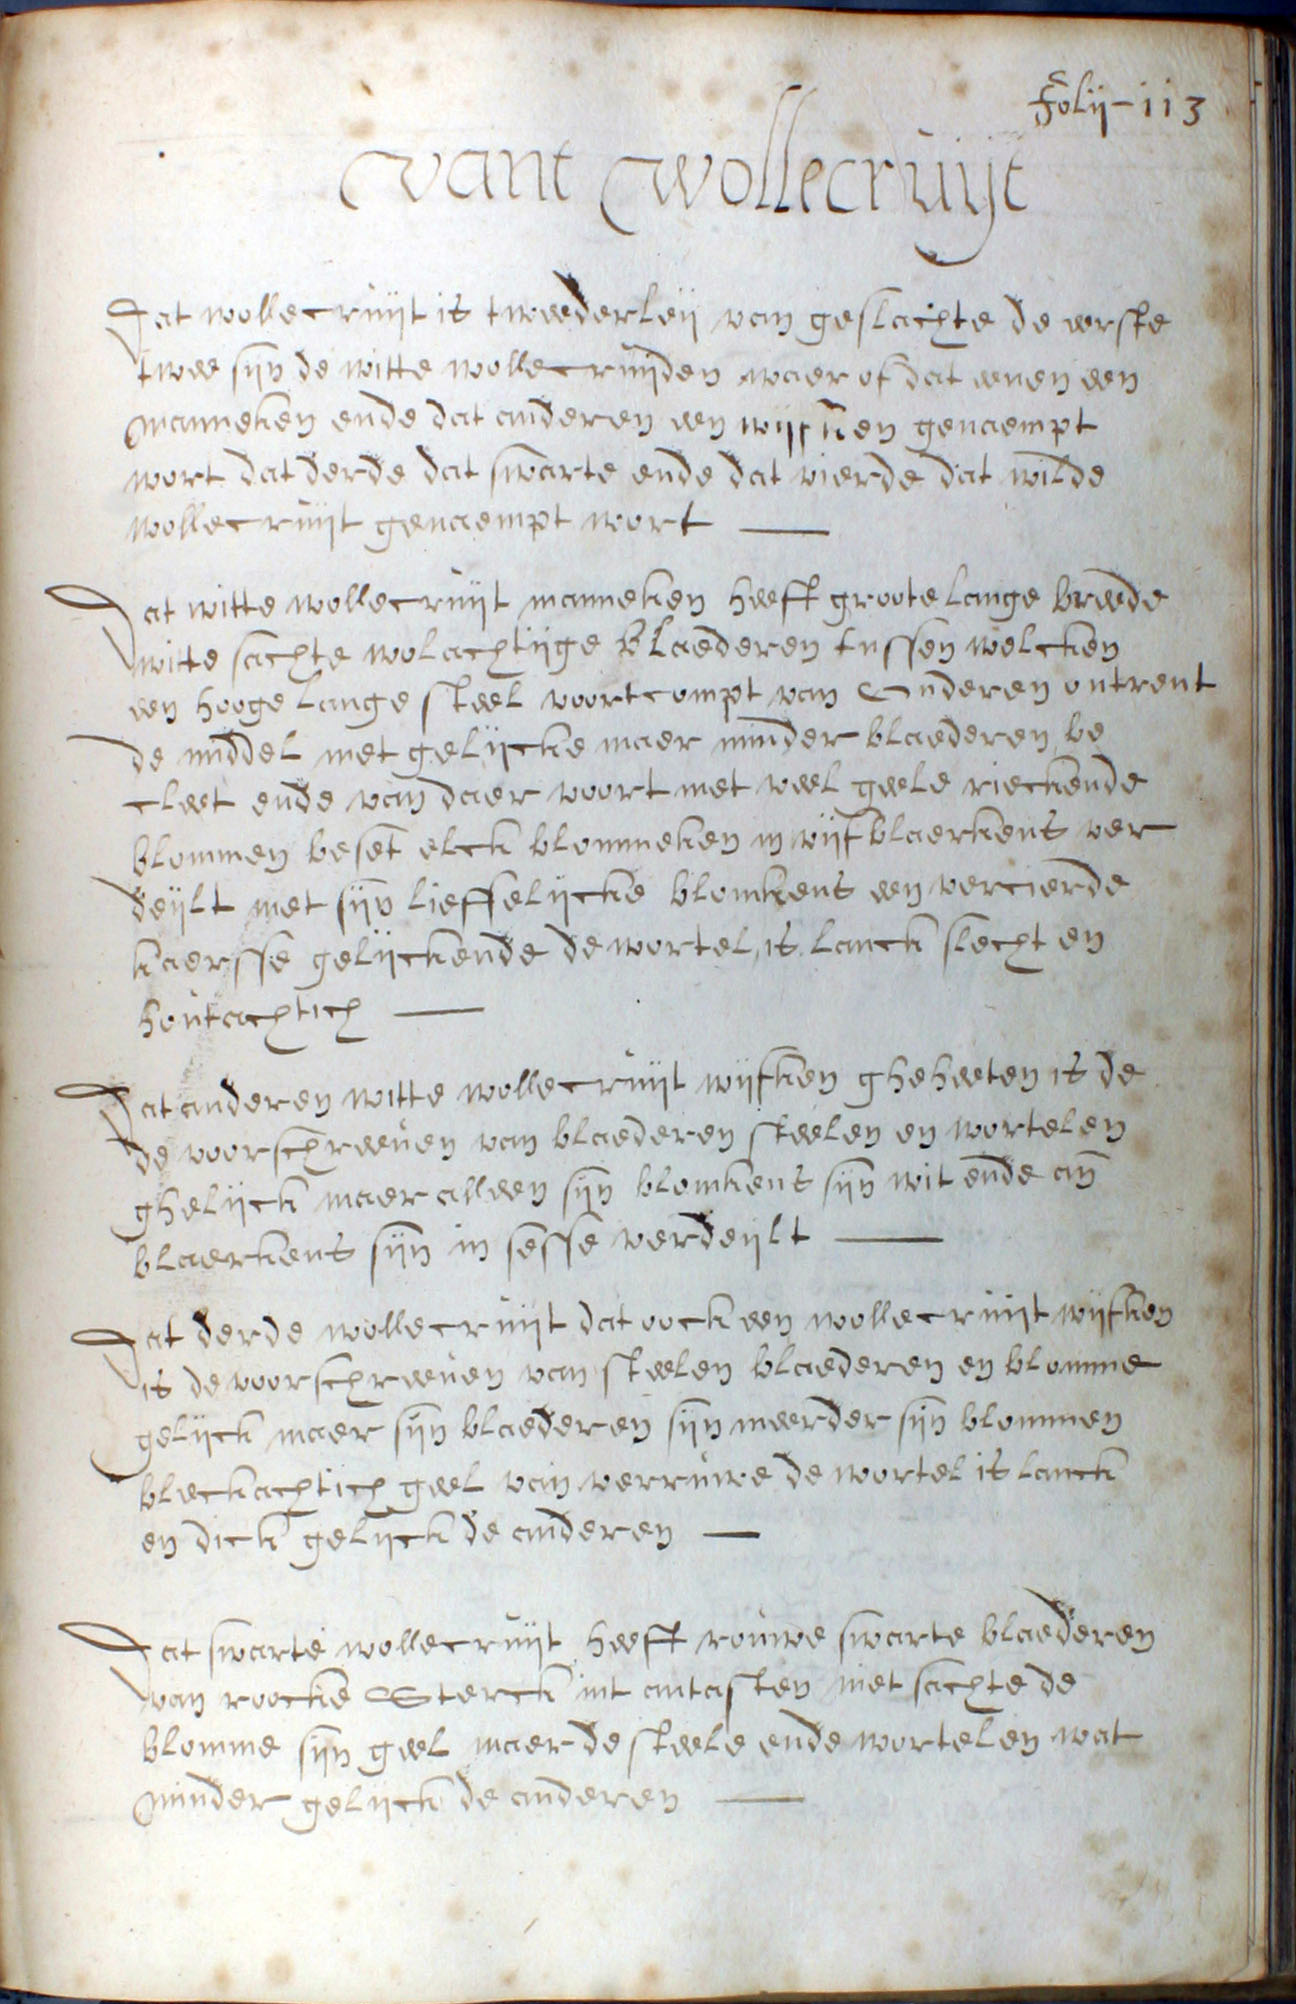 Folij-113
vant wollecruijt
Dat wollecruijt is tweederleij van geslachte de eerste
twee sijn de witte wollecruijden waer of dat eenen een
manneken ende dat anderen een wijfken genaempt
wort dat derde dat swarte ende dat vierde dat wilde
wollecruijt genaempt wort
Dat witte wollecruijt manneken heeft groote lange breede
witte sachte wolachtijge blaederen tussen welcken
een hooge lange steel voortcompt van onderen ontrent
de middel met gelijcke maer minder blaederen be
cleet ende van daer voort met veel geele rieckende
blommen beset elck blommeken in vijf blaerkens ver
deijlt met sijn lieffelijcke blomkens een vercierde
kaersse gelijckende de wortel is lanck slecht en
houtachtich
Dat anderen witte wollecruijt wijfken gheheeten is de
de voorschreeven van blaederen steelen en wortelen
ghelijck maer alleen sijn blomkens sijn wit ende an
blaerkens sijn in sesse verdeijlt
Dat derde wollecruijt dat oock een wollecruijt wijfken
is de voorschreeven van steelen blaederen en blomme
gelijck maer sijn blaederen sijn meerder sijn blommen
bleckachtich geel van verruwe de wortel is lanck
en dick gelijck de anderen
Dat swarte wollecruijt heeft rouwe swarte blaederen
van roocke Sterck int antasten niet sachte de
blomme sijn geel maer de steele ende wortelen wat
minder gelijck de anderen